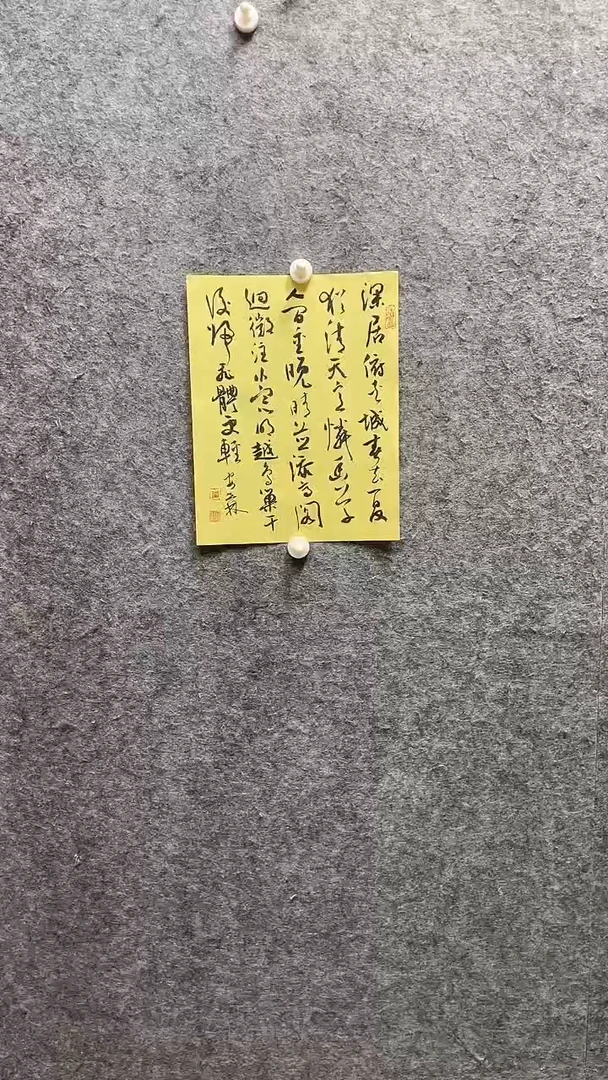 深居俯夾城春去夏
猶清天意憐幽草
人间重晚晴並添高阁
迥微注小窗明越鸟巢干
後归飛體更輕